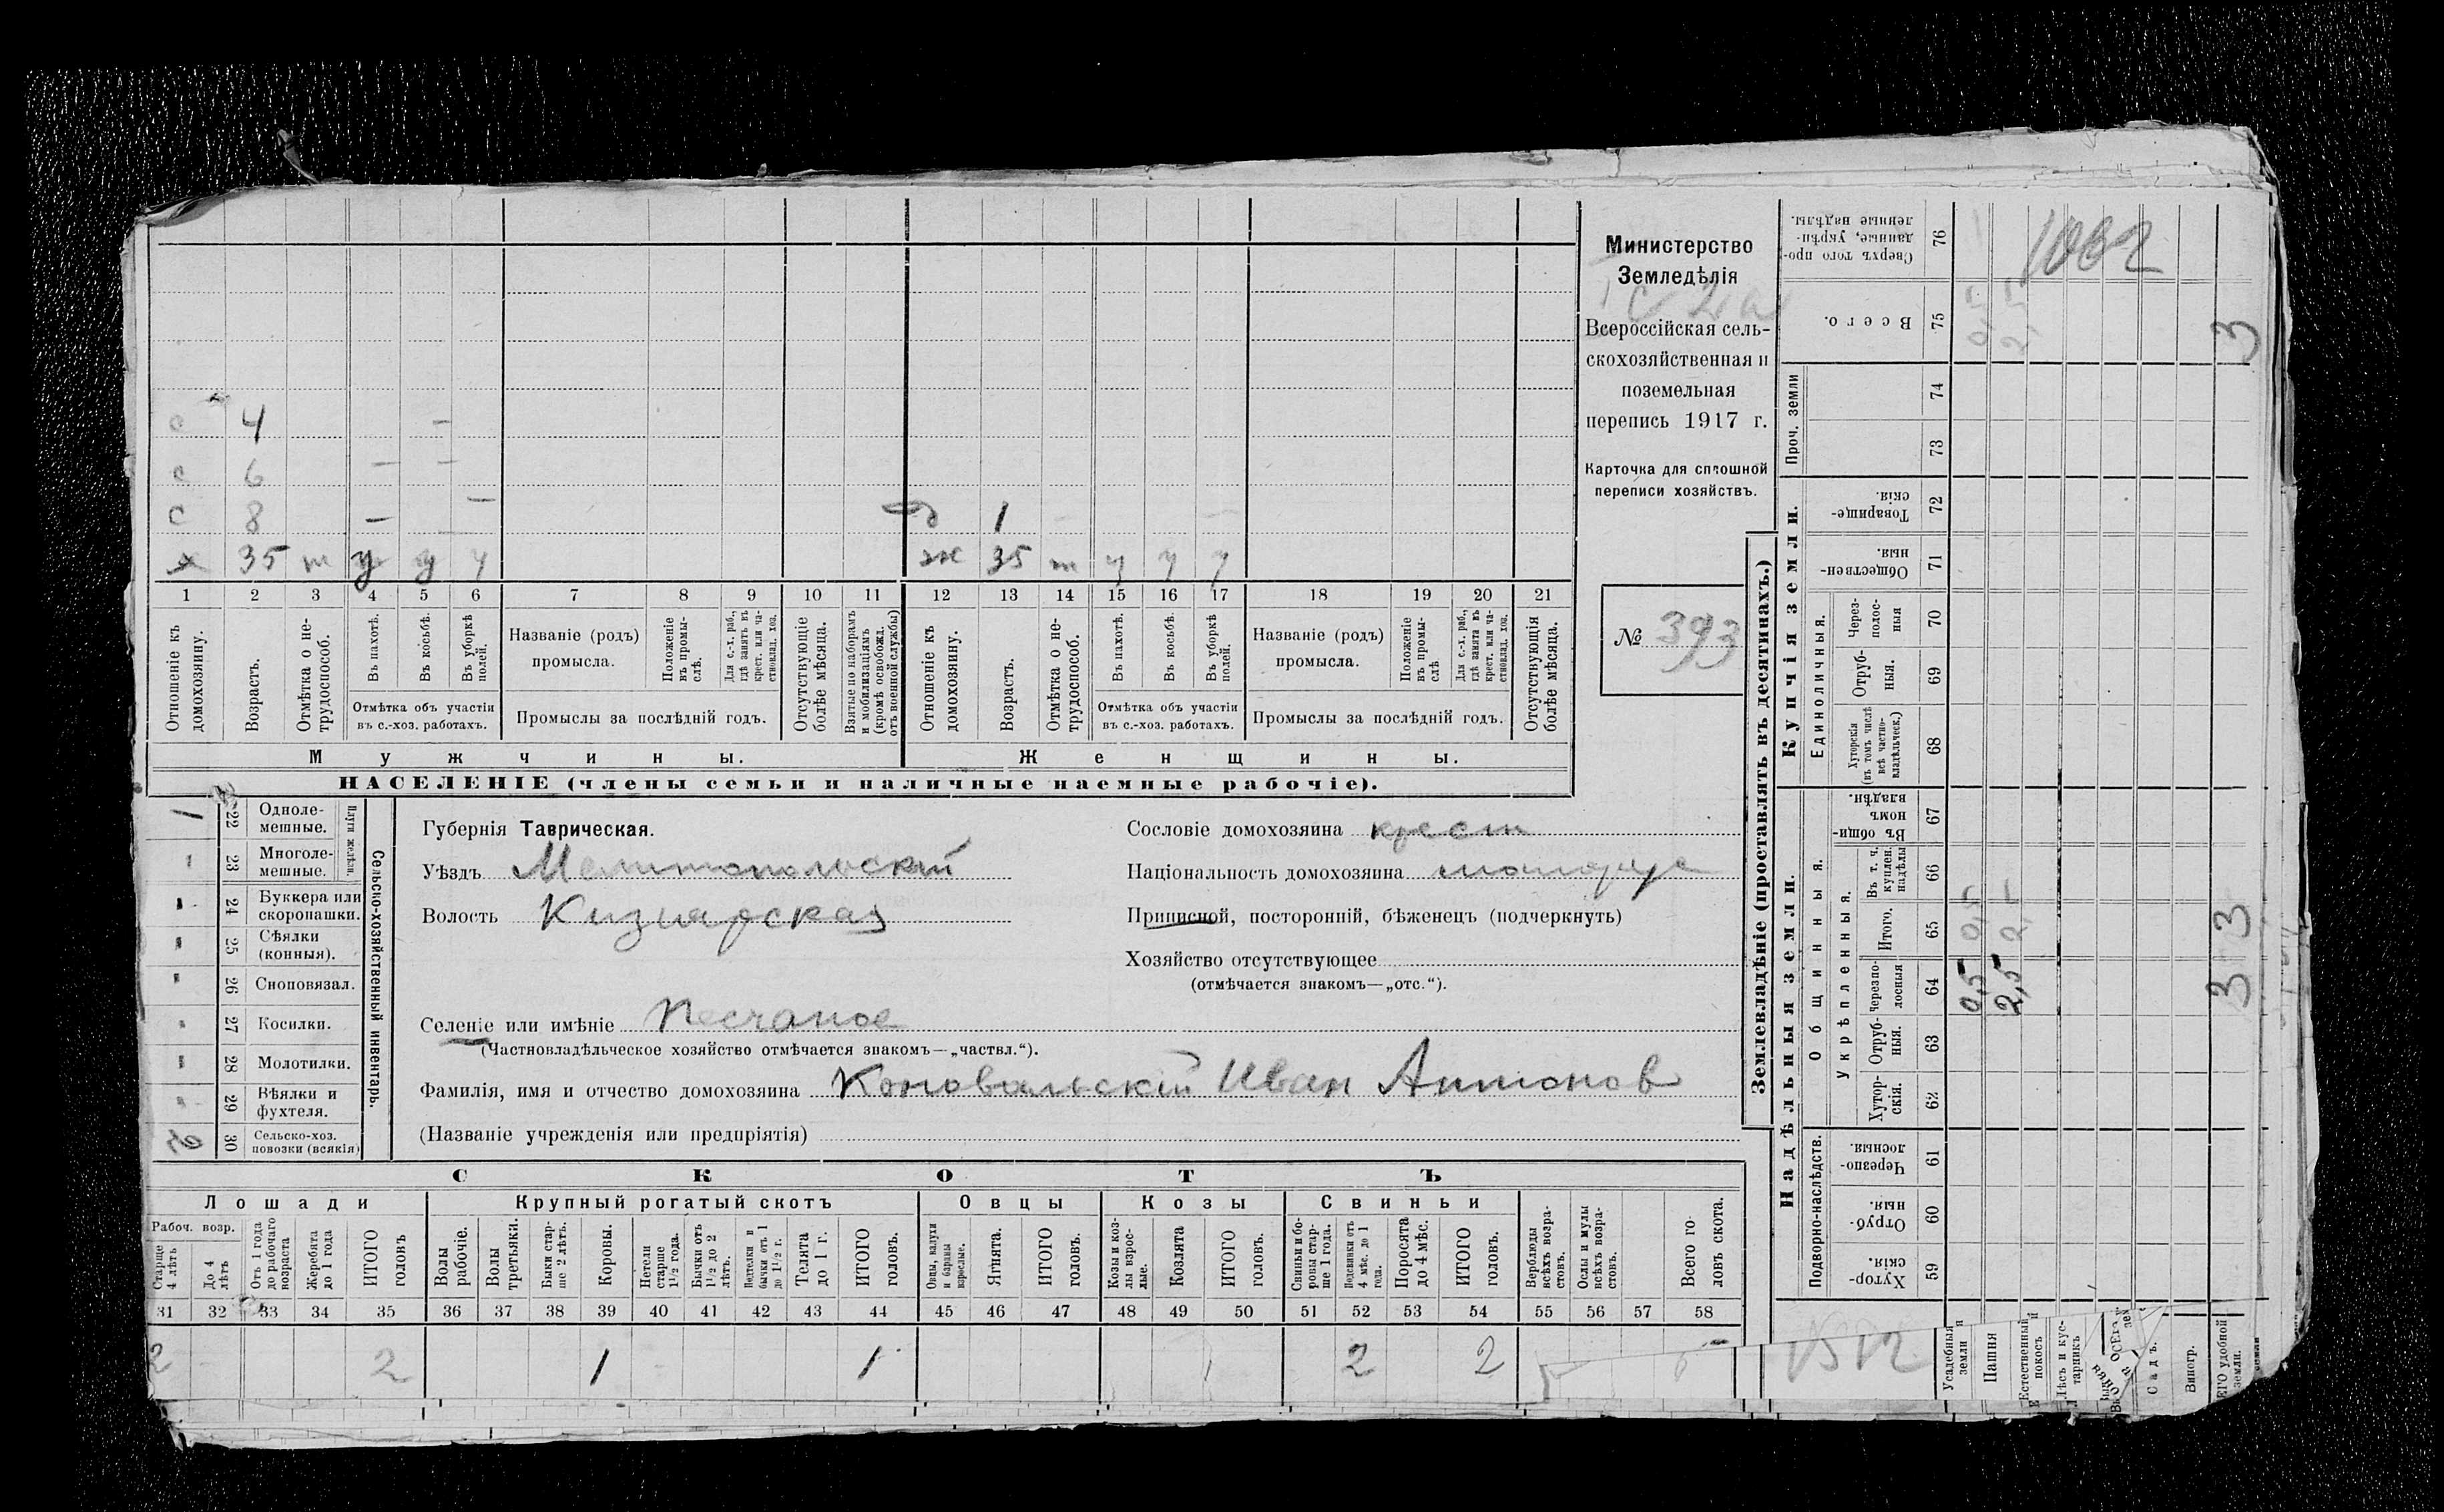 4
6
с 8
д 1
х 35 т у у у
ж 35 т у у у
1 2 3 4 5 6 7 8 9 10 11 12 13 14 15 16 17 18 19 20 21
Отношеніе къ домохозяину.
Возрастъ.
Отмѣтка о не-трудоспособ.
Въ пахотѣ.
Въ косьбѣ.
Въ уборкѣ полей.
Отмѣтка объ участіи
въ с.-хоз. работахъ.
Названіе (родъ)
промысла.
Положеніе въ промы-слѣ.
Для с.-х. раб., гдѣ занятъ въ крест. или ча-стновлад. хоз.
Промыслы за послѣдній годъ.
Отсутствующіе болѣе мѣсяца.
Взятые по наборамъ и мобилизаціямъ (кромѣ освобожд. отъ военной службы)
Отношеніе къ домохозяину.
Возрастъ.
Отмѣтка о не-трудоспособ.
Въ пахотѣ.
Въ косьбѣ.
Въ уборкѣ полей.
Отмѣтка объ участіи
въ с.-хоз. работахъ.
Названіе (родъ)
промысла.
Положеніе въ промы-слѣ
Для с.-х. раб., гдѣ занята въ крест. или ча-стновлад. хоз.
Промыслы за послѣдній годъ.
Отсутствующія болѣе мѣсяца.
Мужчины.
Женщины.
НАСЕЛЕНІЕ (члены семьи и наличные наемные рабочіе).
Министерство
Земледѣлія
Всероссійская сель-
скохозяйственная и
поземельная
перепись 1917 г.
Карточка для сплошной
переписи хозяйствъ.
№ 393
1 22 Одноле-мешные.
23 Многоле-мешные.
Плуги желѣзн.
24 Буккера или скоропашки.
25 Сѣялки (конныя).
26 Сноповязал.
27 Косилки.
28 Молотилки.
29 Вѣялки и фухтеля.
30 Сельско-хоз. повозки (всякія)
Сельско-хозяйственный инвентарь.
Губернія Таврическая.
Уѣздъ Мелитопольский
Волость Кизиярская
Селеніе или имѣніе Песчаное
(Частновладѣльческое хозяйство отмѣчается знакомъ—„частвл.“).
Фамилія, имя и отчество домохозяина Коновальскій Иван Антонов
(Названіе учрежденія или предпріятія)
Сословіе домохозяина крест
Національность домохозяина малорус
Приписной, посторонній, бѣженецъ (подчеркнуть)
Хозяйство отсутствующее
(отмѣчается знакомъ—„отс.“).
СКОТЪ
Лошади
Крупный рогатый скотъ
Овцы
Козы
Свиньи
Рабоч. возр.
Старше 4 лѣтъ
До 4 лѣтъ
Отъ 1 года до рабочаго возраста
Жеребята до 1 года
ИТОГО головъ
Волы рабочіе.
Волы третьяки.
Быки стар-ше 2 лѣтъ.
Коровы.
Нетели старше 1½ года.
Бычки отъ 1½ до 2 лѣтъ.
Подтелки и бычки отъ 1 до 1½ г.
Телята до 1 г.
ИТОГО головъ.
Овцы, валухи и бараны взрослые.
Ягнята.
ИТОГО головъ.
Козы и коз-лы взрос-лые.
Козлята
ИТОГО головъ.
Свиньи и бо-ровы стар-ше 1 года.
Подсвинки отъ 4 мѣс. до 1 года.
Поросята до 4 мѣс.
ИТОГО головъ.
Верблюды всѣхъ возра-стовъ.
Ослы и мулы всѣхъ возра-стовъ.
Всего го-ловъ скота.
31 32 33 34 35 36 37 38 39 40 41 42 43 44 45 46 47 48 49 50 51 52 53 54 55 56 57 58
2 2 1 1 2 2
Землевладѣніе (проставлять въ десятинахъ.)
Сверхъ того про-данные, укрѣп-ленные надѣлы. 76
1032
Всего. 75
0,5 2,5 3
Проч. земли
74
73
Купчія земли.
Товарище-скія. 72
Обществен-ныя. 71
Единоличныя.
Через-полос-ныя 70
Отруб-ныя. 69
Хуторскія (въ томъ числѣ всѣ частно-владѣльческ.) 68
Надѣльныя земли.
Общинныя.
Въ общи-номъ владѣн. 67
Укрѣпленныя.
Въ т. ч. куплен. надѣлы 66
Итого. 65
0,5 2,5 3
Черезпо-лосныя 64
0,5 2,5 3
Отруб-ныя. 63
Хутор-скія. 62
Подворно-наслѣдств.
Черезпо-лосныя. 61
Отруб-ныя. 60
Хутор-скія. 59
Усадебныя земли
Пашня
Естественный покосъ
Лѣсъ и кус-тарникъ
Садъ.
Виногр.
ЕГО удобной земли.